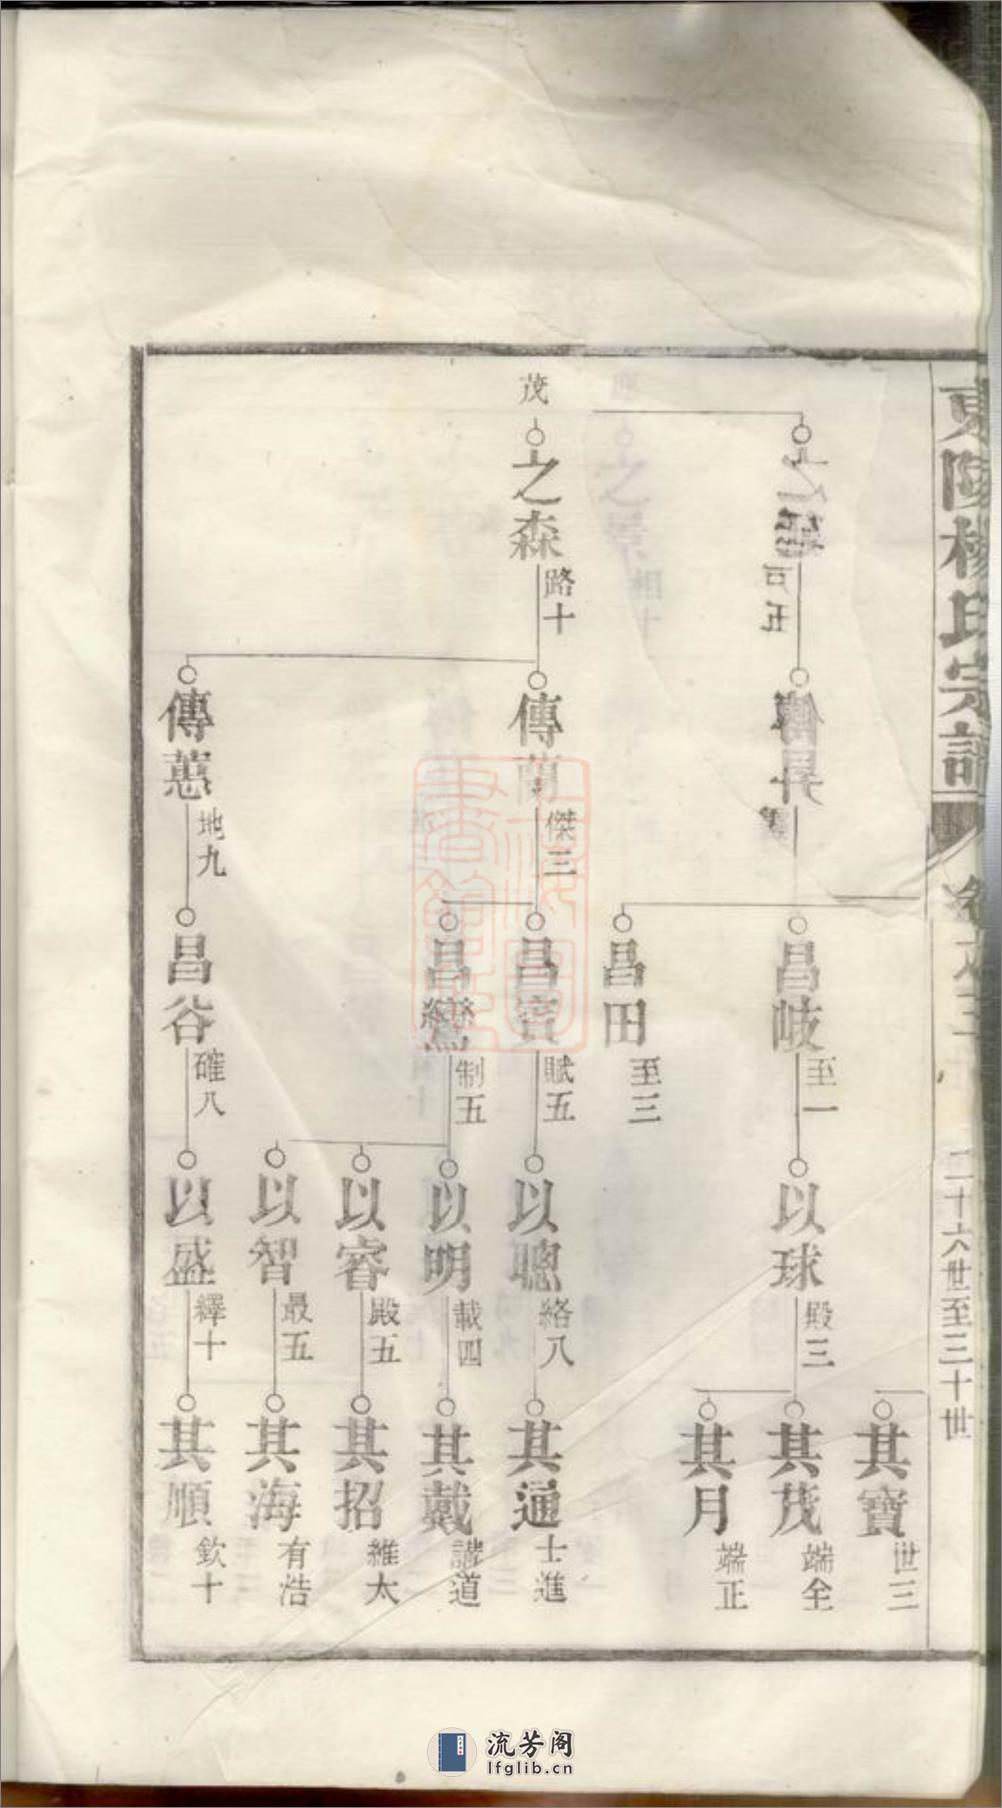 東陽楊氏宗譜
卷之三
二十六世至三十世
其寶 世三
昌岐 至一
以球 殿三
其茂 端全
其月 端正
昌田 至三
茂
之森 路十
傳蘭 傑三
昌賓 賦五
以聰 絡八
其通 士進
昌鸞 制五
以明 載四
其戴 諧道
以睿 殿五
其招 維太
以智 最五
其海 有浩
傳蕙 地九
昌谷 確八
以盛 繹十
其順 欽十
流芳阁
lfglib.cn